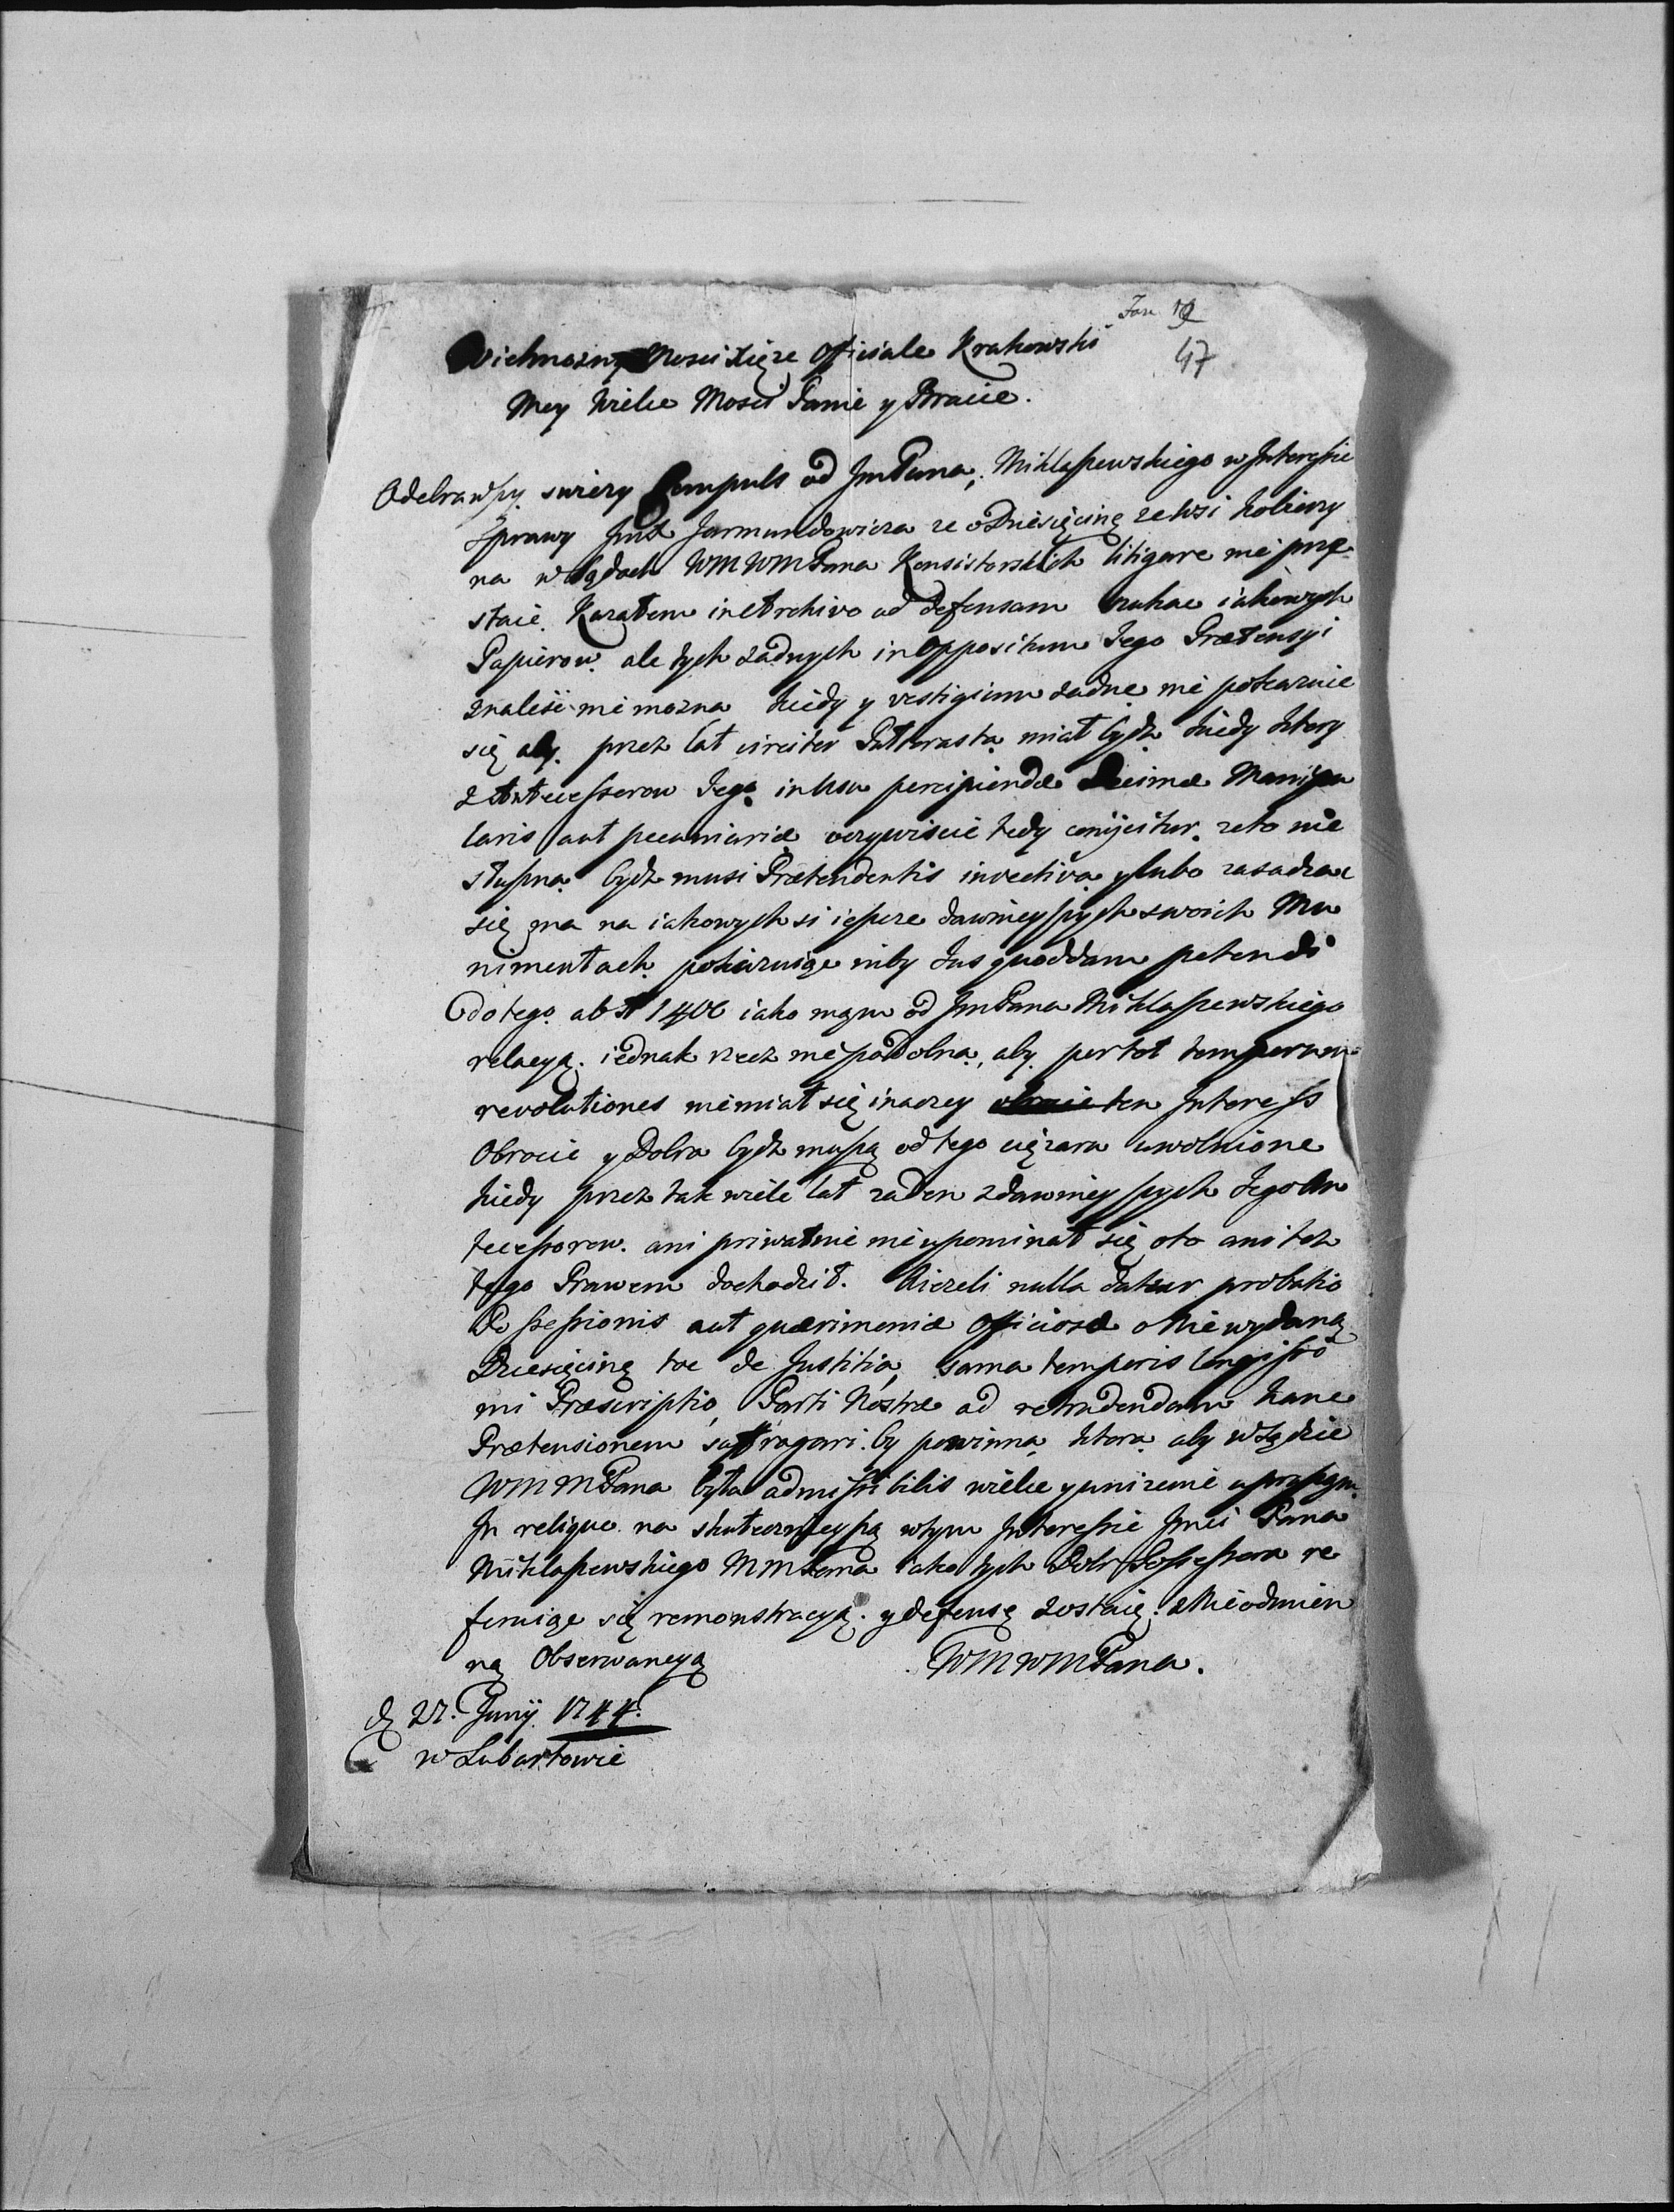 Jan 19
47
Wielmożny Mosci Xięze Officiale Krakowski
Mey Wielce Mosci Panie y Bracie.
Odebrawszy swiezy Compuls od JmPana, Miklaszewskiego w Interessie
Sprawy JmX Jarmundowicza ze o Dziesięcinę ze wsi
na w Sądach WMWMPana Konsistorskich litigare nie prze
staie. Kazałem in Archivo ad defensam szukac iakowych
Papierow. ale tych zadnych in Oppositum Jego Prætensyi
znalesc nie mozna kiedy y vestigium zadne nie pokazuie
się aby. przez lat circiter Pułtorasta miał bydz kiedy ktory
z Antecessorow Jego in Usu percipiendæ Decimæ Manipu
laris aut pecuniariæ oczywiscie tedy conijcitur. ze to nie
słuszna bydz musi Prætendentis invectiva y lubo zasadzac
się ma na iakowychsi ieszcze dawnieyszych swoich Mu
nimentach pokazuiąc niby Jus quoddam petendi
do tego ab A 1406 iako mam od JmPana Miklaszewskiego
relacyą. iednak rzecz nie podobna, aby per tot temporum
revolutiones nie miał się inaczey obrocic ten Interess
Obrocic y Dobra bydz muszą od tego cięzaru uwolnione
kiedy przez tak wiele lat zaden z dawnieyszych Jego An
tecessorow. ani priwatnie nie upominał się oto ani tez
tego Prawem dochodził. Jiezeli nulla datur probatio
Possessionis aut quærimoniæ Officiosæ o Nie wydaną
Dziesięcinę toc de Justitia, sama temporis longissi
mi Præscriptio, Parti Nostræ ad retrudendam hanc
Prætensionem suffragari by powinna ktora aby w Sądzie
WMMPana była admissibilis wielce y unizenie upraszam.
In reliquo na skutecznieyszą w tym Interessie Jmci Pana
Miklaszewskiego MMPana iako tych Dobr Possessora re
feruiąc się remonstracyą. y defensę zostaię. z Nieodmien
ną Obserwancyą
WMWMPana.
d 27. Junij 1744.
w Lubartowie